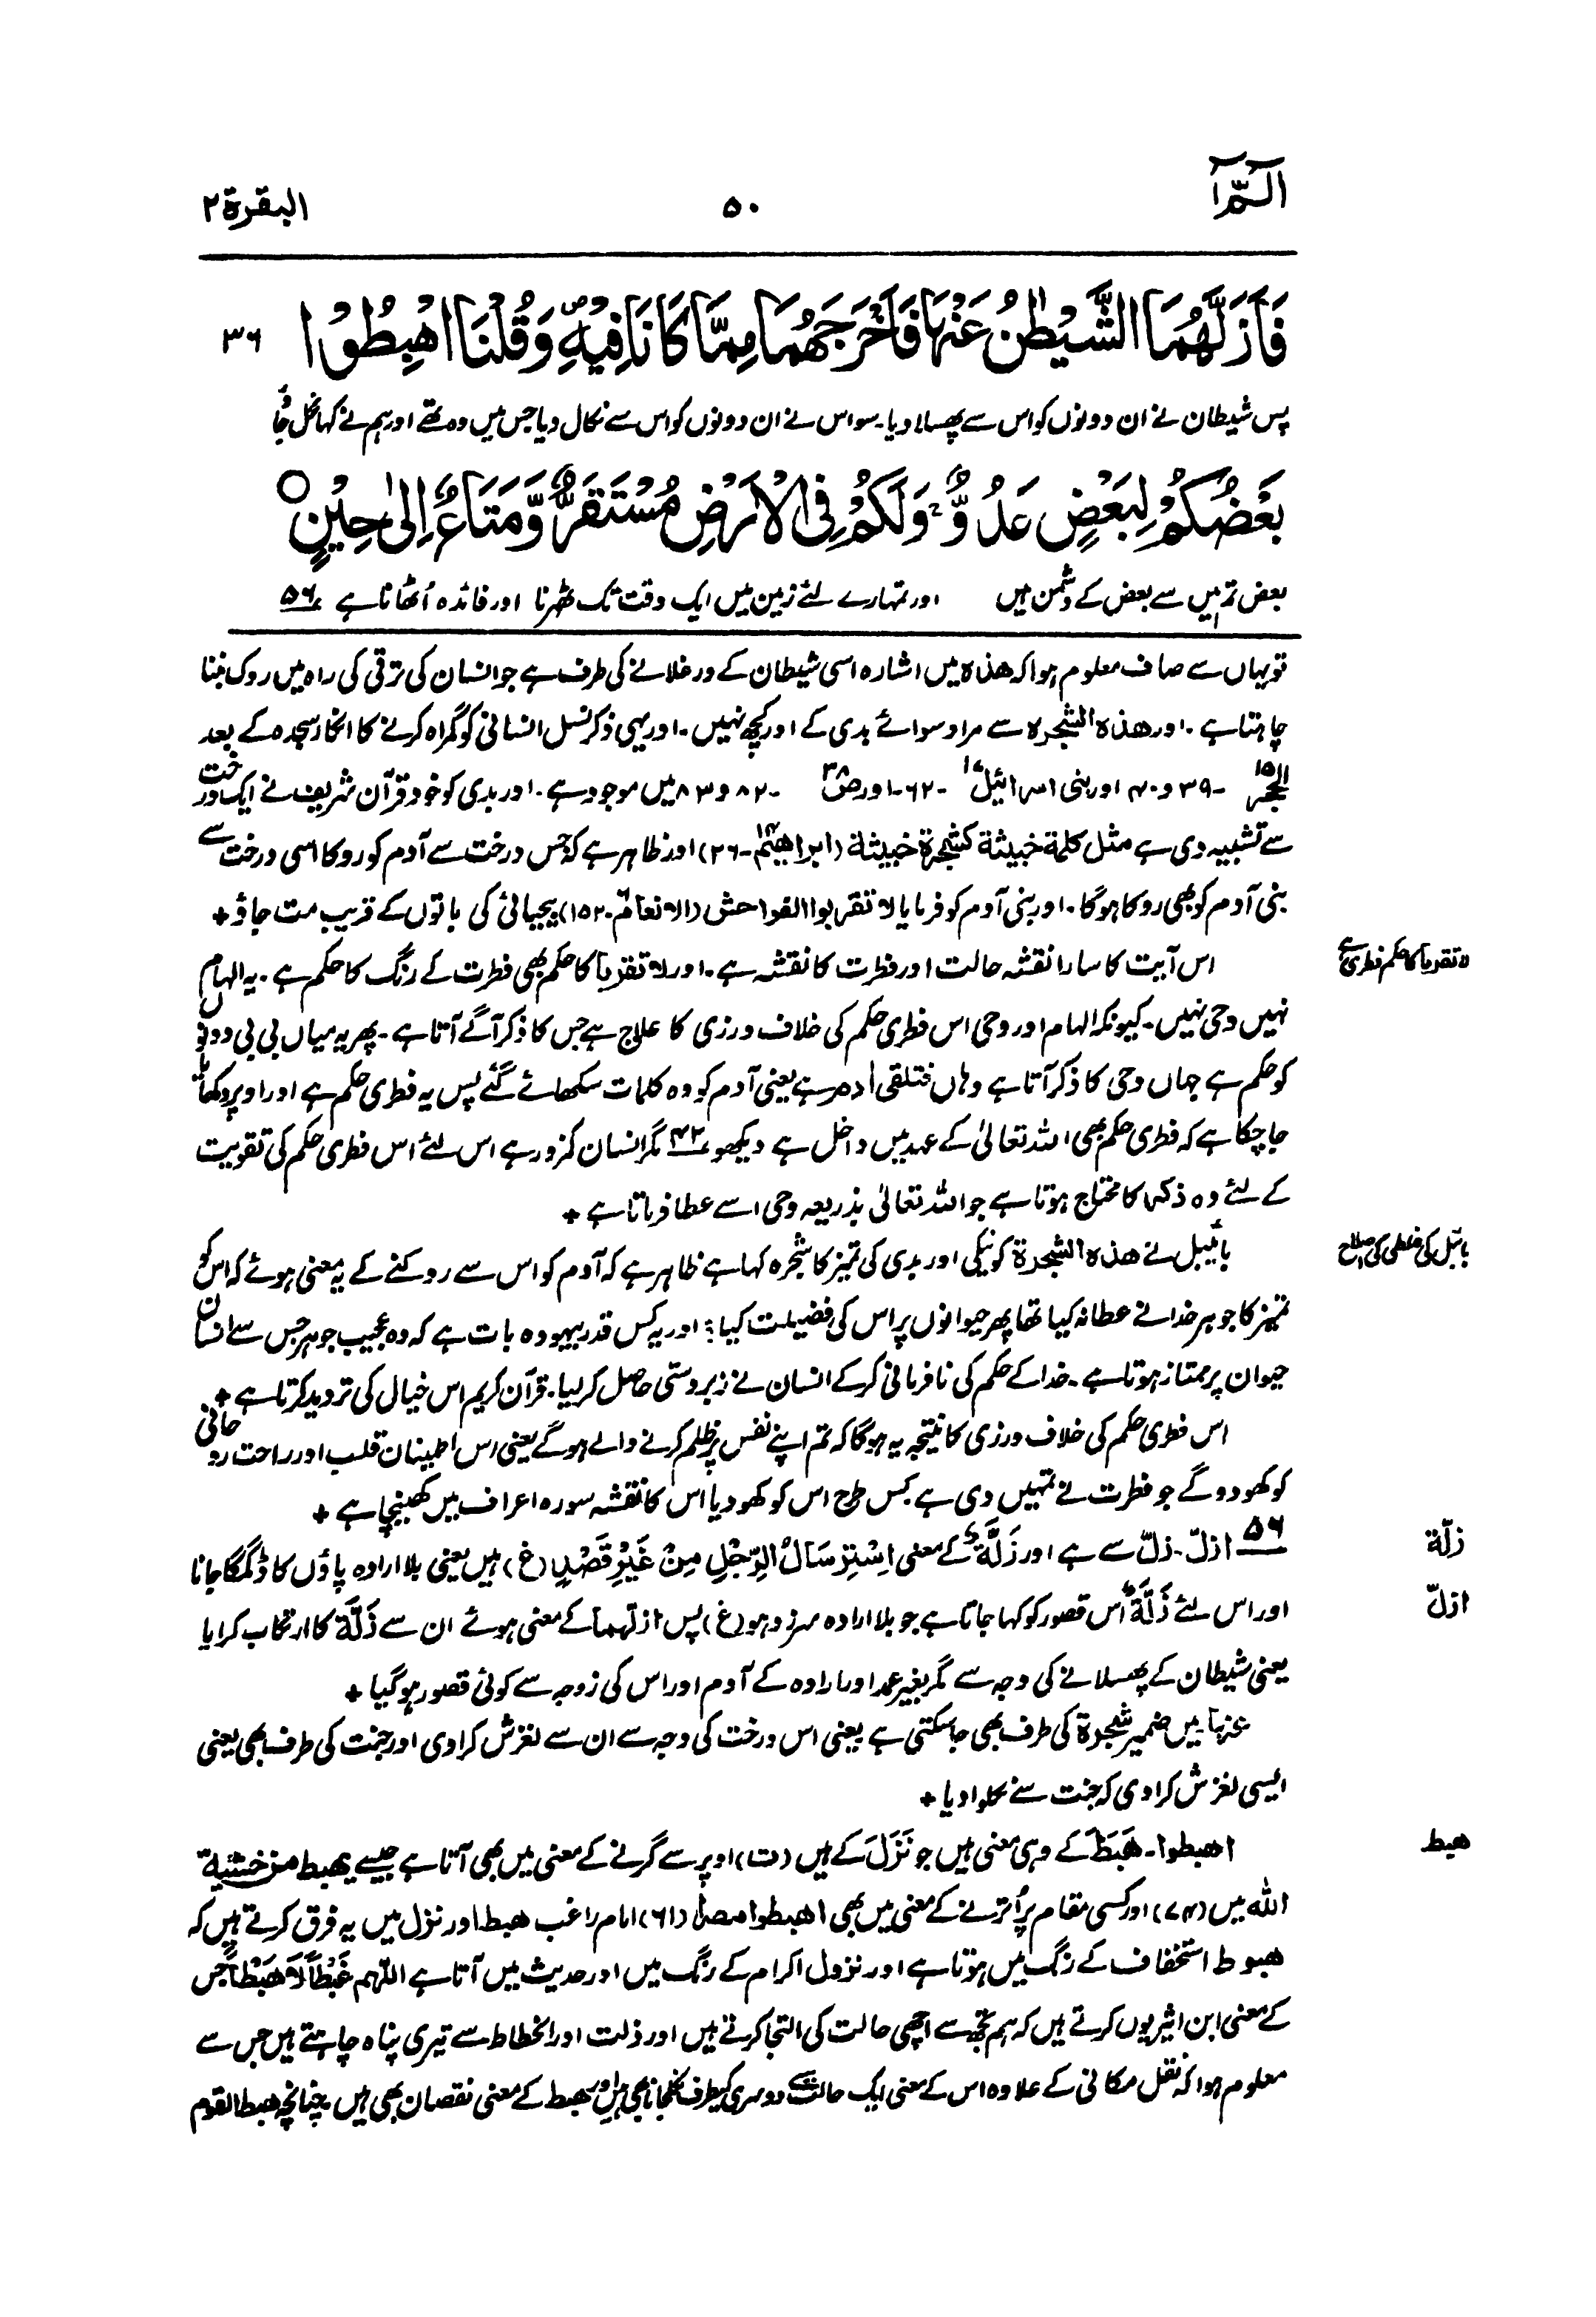 الٓمّٓ ۱
۵۰
البقرۃ ۲
فَاَزَلَّهُمَا الشَّيْطٰنُ عَنْهَا فَاَخْرَجَهُمَا مِمَّا كَانَا فِيْهِ ۪ وَقُلْنَا اهْبِطُوْا
۳۶
پس شیطان نے ان دونوں کو اس سے پھسلا دیا۔ سو اس نے ان دونوں کو اس سے نکال دیا جس میں وہ تھے اور ہم نے کہا نکل جاؤ
بَعْضُكُمْ لِبَعْضٍ عَدُوٌّ ۚ وَلَكُمْ فِى الْاَرْضِ مُسْتَقَرٌّ وَّمَتَاعٌ اِلٰى حِيْنٍ ○
بعض تم میں سے بعض کے دشمن ہیں اور تمہارے لئے زمین میں ایک وقت تک ٹھرنا اور فائدہ اُٹھانا ہے ۵۶
تو یہاں سے صاف معلوم ہوا کہ ھذہ میں اشارہ اسی شیطان کے ورغلانے کی طرف ہے جو انسان کی ترقی کی راہ میں روک بننا
چاہتا ہے ۔ اور ھذہ الشجرہ سے مراد سوائے بدی کے اور کچھ نہیں ۔ اور یہی ذکر نسل انسانی کو گمراہ کرنے کا انکار سجدہ کے بعد
الحجر ۱۵ ۔ ۳۹ و ۴۰ اور بنی اسرائیل ۱۷ ۔ ۶۲ ۔ اور صٓ ۳۸ ۔ ۸۲ و ۸۳ میں موجود ہے ۔ اور بدی کو خود قرآن شریف نے ایک درخت
سے تشبیہ دی ہے مثل کلمة خبیثة کشجرة خبیثة (ابراھیم ۱۴ ۔ ۲۶) اور ظاہر ہے کہ جس درخت سے آدم کو روکا اسی درخت سے
بنی آدم کو بھی روکا ہوگا ۔ اور بنی آدم کو فرمایا لا تقربوا الفواحش (الانعام ۶ ۔ ۱۵۲) بیحیائی کی باتوں کے قریب مت جاؤ +
لا تقربا کا حکم فطری ہے
اس آیت کا سارا نقشہ حالت اور فطرت کا نقشہ ہے ۔ اور لا تقربا کا حکم بھی فطرت کے رنگ کا حکم ہے ۔ یہ الہام
نہیں وحی نہیں ۔ کیونکہ الہام اور وحی اس فطری حکم کی خلاف ورزی کا علاج ہے جس کا ذکر آگے آتا ہے ۔ پھر یہ میاں بی بی دونوں
کو حکم ہے جہاں وحی کا ذکر آتا ہے وہاں فتلقی اٰدم ہے یعنی آدم کو وہ کلمات سکھائے گئے پس یہ فطری حکم ہے اور اوپر دکھایا
جا چکا ہے کہ فطری حکم بھی اللہ تعالیٰ کے عہد میں داخل ہے دیکھو ۴۲ مگر انسان کمزور ہے اس لئے اس فطری حکم کی تقویت
کے لئے وہ ذکر کا محتاج ہوتا ہے جو اللہ تعالیٰ بذریعہ وحی اسے عطا فرماتا ہے +
بائبل کی غلطی کی اصلاح
بائیبل نے ھذہ الشجرة کو نیکی اور بدی کی تمیز کا شجرہ کہا ہے ظاہر ہے کہ آدم کو اس سے روکنے کے یہ معنی ہوئے کہ اس کو
تمیز کا جوہر خدا نے عطا نہ کیا تھا پھر حیوانوں پر اس کی فضیلت کیا؟ اور یہ کس قدر بیہودہ بات ہے کہ وہ عجیب جوہر جس سے انسان
حیوان پر ممتاز ہوتا ہے ۔ خدا کے حکم کی نافرمانی کرکے انسان نے زبردستی حاصل کر لیا ۔ قرآن کریم اس خیال کی تردید کرتا ہے +
اس فطری حکم کی خلاف ورزی کا نتیجہ یہ ہوگا کہ تم اپنے نفس پر ظلم کرنے والے ہو گے یعنی اس اطمینان قلب اور راحت روحانی
کو کھو دو گے جو فطرت نے تمہیں دی ہے کس طرح اس کو کھو دیا اس کا نقشہ سورہ اعراف میں کھینچا ہے +
زلّة
۵۶ ازلّ ۔ زلّ سے ہے اور زَلَّة کے معنی اِسْتِرْسَالُ الرِّجْلِ مِنْ غَيْرِ قَصْدٍ (غ) ہیں یعنی بلا ارادہ پاؤں کا ڈگمگا جانا
ازلّ
اور اس لئے زَلَّة اس قصور کو کہا جاتا ہے جو بلا ارادہ سرزد ہو (غ) پس ازلّهما کے معنی ہوئے ان سے زَلَّة کا ارتکاب کرایا
یعنی شیطان کے پھسلانے کی وجہ سے مگر بغیر عمد اور ارادہ کے آدم اور اس کی زوجہ سے کوئی قصور ہو گیا +
عنہا میں ضمیر شجرة کی طرف بھی جا سکتی ہے یعنی اس درخت کی وجہ سے ان سے لغزش کرا دی اور جنت کی طرف بھی یعنی
ایسی لغزش کرا دی کہ جنت سے نکلوا دیا +
ھبط
اھبطوا ۔ ھَبَطَ کے وہی معنی ہیں جو نَزَلَ کے ہیں (ت) اوپر سے گرنے کے معنی میں بھی آتا ہے جیسے یھبط من خشیة
اللہ میں (۷۴) اور کسی مقام پر اُترنے کے معنی میں بھی اھبطوا مصرا (۶۱) امام راغب ھبط اور نزل میں یہ فرق کرتے ہیں کہ
ھبوط استخفاف کے رنگ میں ہوتا ہے اور نزول اکرام کے رنگ میں اور حدیث میں آتا ہے اللّٰہم غَبْطاً لا ھَبْطاً جس
کے معنی ابن اثیر یوں کرتے ہیں کہ ہم تجھ سے اچھی حالت کی التجا کرتے ہیں اور ذلت اور انحطاط سے تیری پناہ چاہتے ہیں جس سے
معلوم ہوا کہ نقل مکانی کے علاوہ اس کے معنی ایک حالت سے دوسری کیطرف نکلجانا بھی ہیں اور ھبط کے معنی نقصان بھی ہیں چنانچہ ھبط القوم